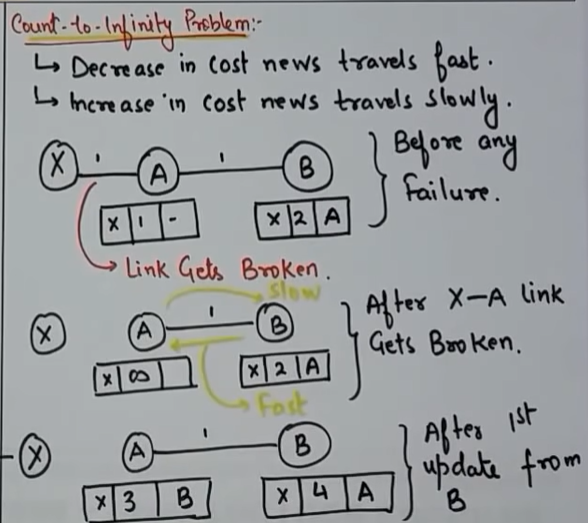 Count-to-Infinity Problem:-
↳ Decrease in cost news travels fast.
↳ Increase in cost news travels slowly.
X 1 A 1 B
Before any
Failure.
X 1 -
X 2 A
Link Gets Broken.
Slow
X A 1 B
After X-A link
Gets Broken.
X ∞
X 2 A
Fast
X A 1 B
After 1st
update from
B
X 3 B
X 4 A